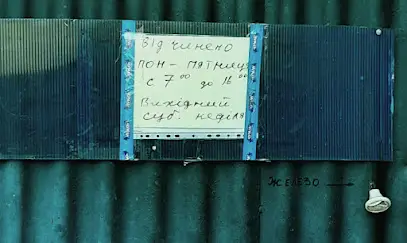 Відчинено
ПОН - ПЯТНИЦ
с 7 00 до 16 00
Вихідний
суб. неділя
ЖЕЛЕЗО